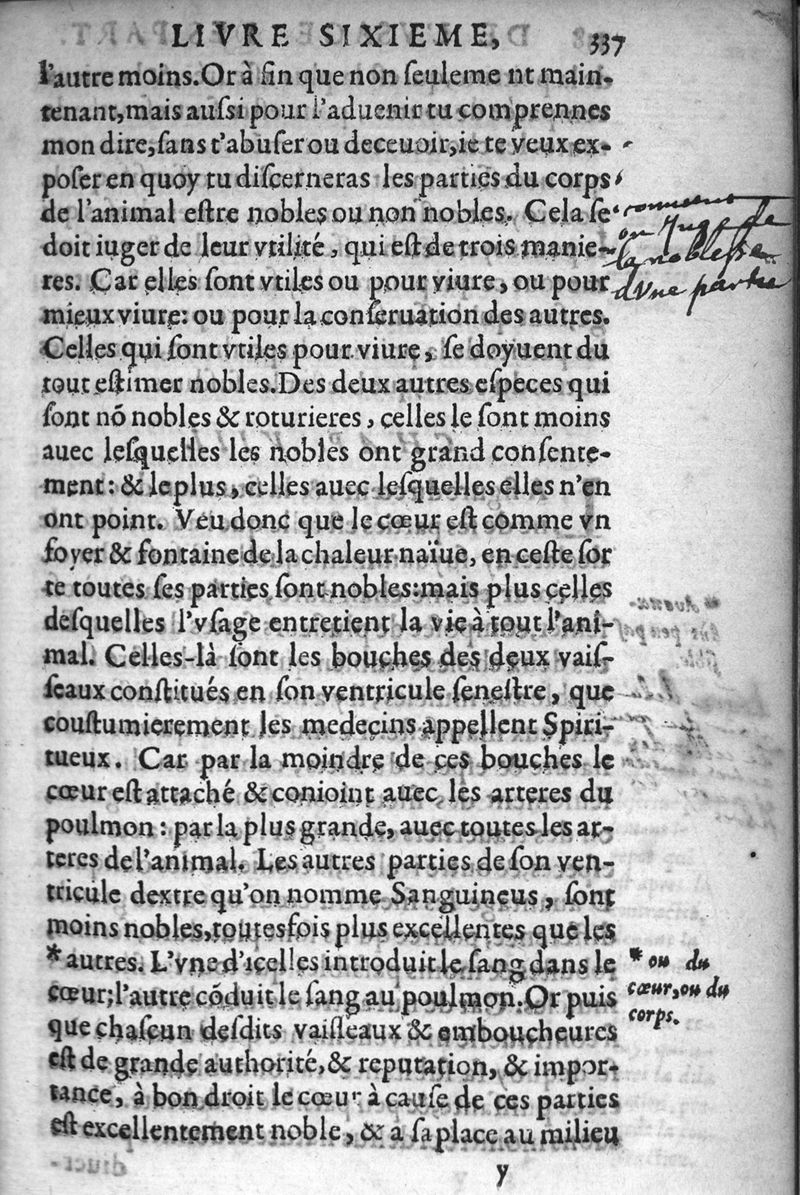 LIVRE SIXIEME, 337
l'autre moins. Or à fin que non ſeuleme nt main-
tenant, mais auſsi pour l'aduenir tu comprennes
mon dire, ſans t'abuſer ou deceuoir, ie te veux ex-
poſer en quoy tu diſcerneras les parties du corps
de l'animal eſtre nobles ou non nobles. Cela ſe
doit iuger de leur vtilité, qui eſt de trois manie-
res. Car elles ſont vtiles ou pour viure, ou pour
mieux viure: ou pour la conſeruation des autres.
Celles qui ſont vtiles pour viure, ſe doyuent du
tout eſtimer nobles. Des deux autres eſpeces qui
ſont nõ nobles & roturieres, celles le ſont moins
auec leſquelles les nobles ont grand conſente-
ment: & le plus, celles auec leſquelles elles n'en
ont point. Veu donc que le cœur eſt comme vn
foyer & fontaine de la chaleur naïue, en ceſte ſor
te toutes ſes parties ſont nobles: mais plus celles
deſquelles l'vſage entretient la vie à tout l'ani-
mal. Celles-là ſont les bouches des deux vaiſ-
ſeaux conſtitués en ſon ventricule ſeneſtre, que
couſtumierement les medecins appellent Spiri-
tueux. Car par la moindre de ces bouches le
cœur eſt attaché & conioint auec les arteres du
poulmon: par la plus grande, auec toutes les ar-
teres de l'animal. Les autres parties de ſon ven-
tricule dextre qu'on nomme Sanguineus, ſont
moins nobles, toutesfois plus excellentes que les
* autres. L'vne d'icelles introduit le ſang dans le
cœur; l'autre cõduit le ſang au poulmon. Or puis
que chaſcun deſdits vaiſſeaux & emboucheures
eſt de grande authorité, & reputation, & impor-
tance, à bon droit le cœur à cauſe de ces parties
eſt excellentement noble, & a ſa place au milieu
y
comment
on juge de
la noblesse
d'une partie
* ou du
cœur, ou du
corps.